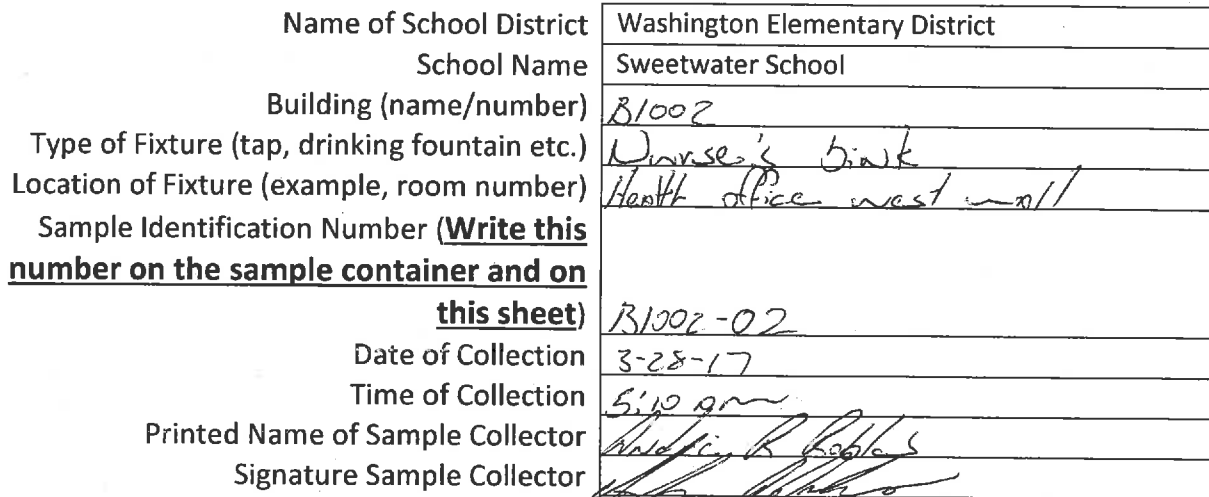 Name of School District Washington Elementary District
School Name Sweetwater School
Building (name/number) B1002
Type of Fixture (tap, drinking fountain etc.) Nurse's Sink
Location of Fixture (example, room number) Health office west wall
Sample Identification Number (Write this
number on the sample container and on
this sheet) B1002-02
Date of Collection 3-28-17
Time of Collection 5:10 am
Printed Name of Sample Collector R Robles
Signature Sample Collector